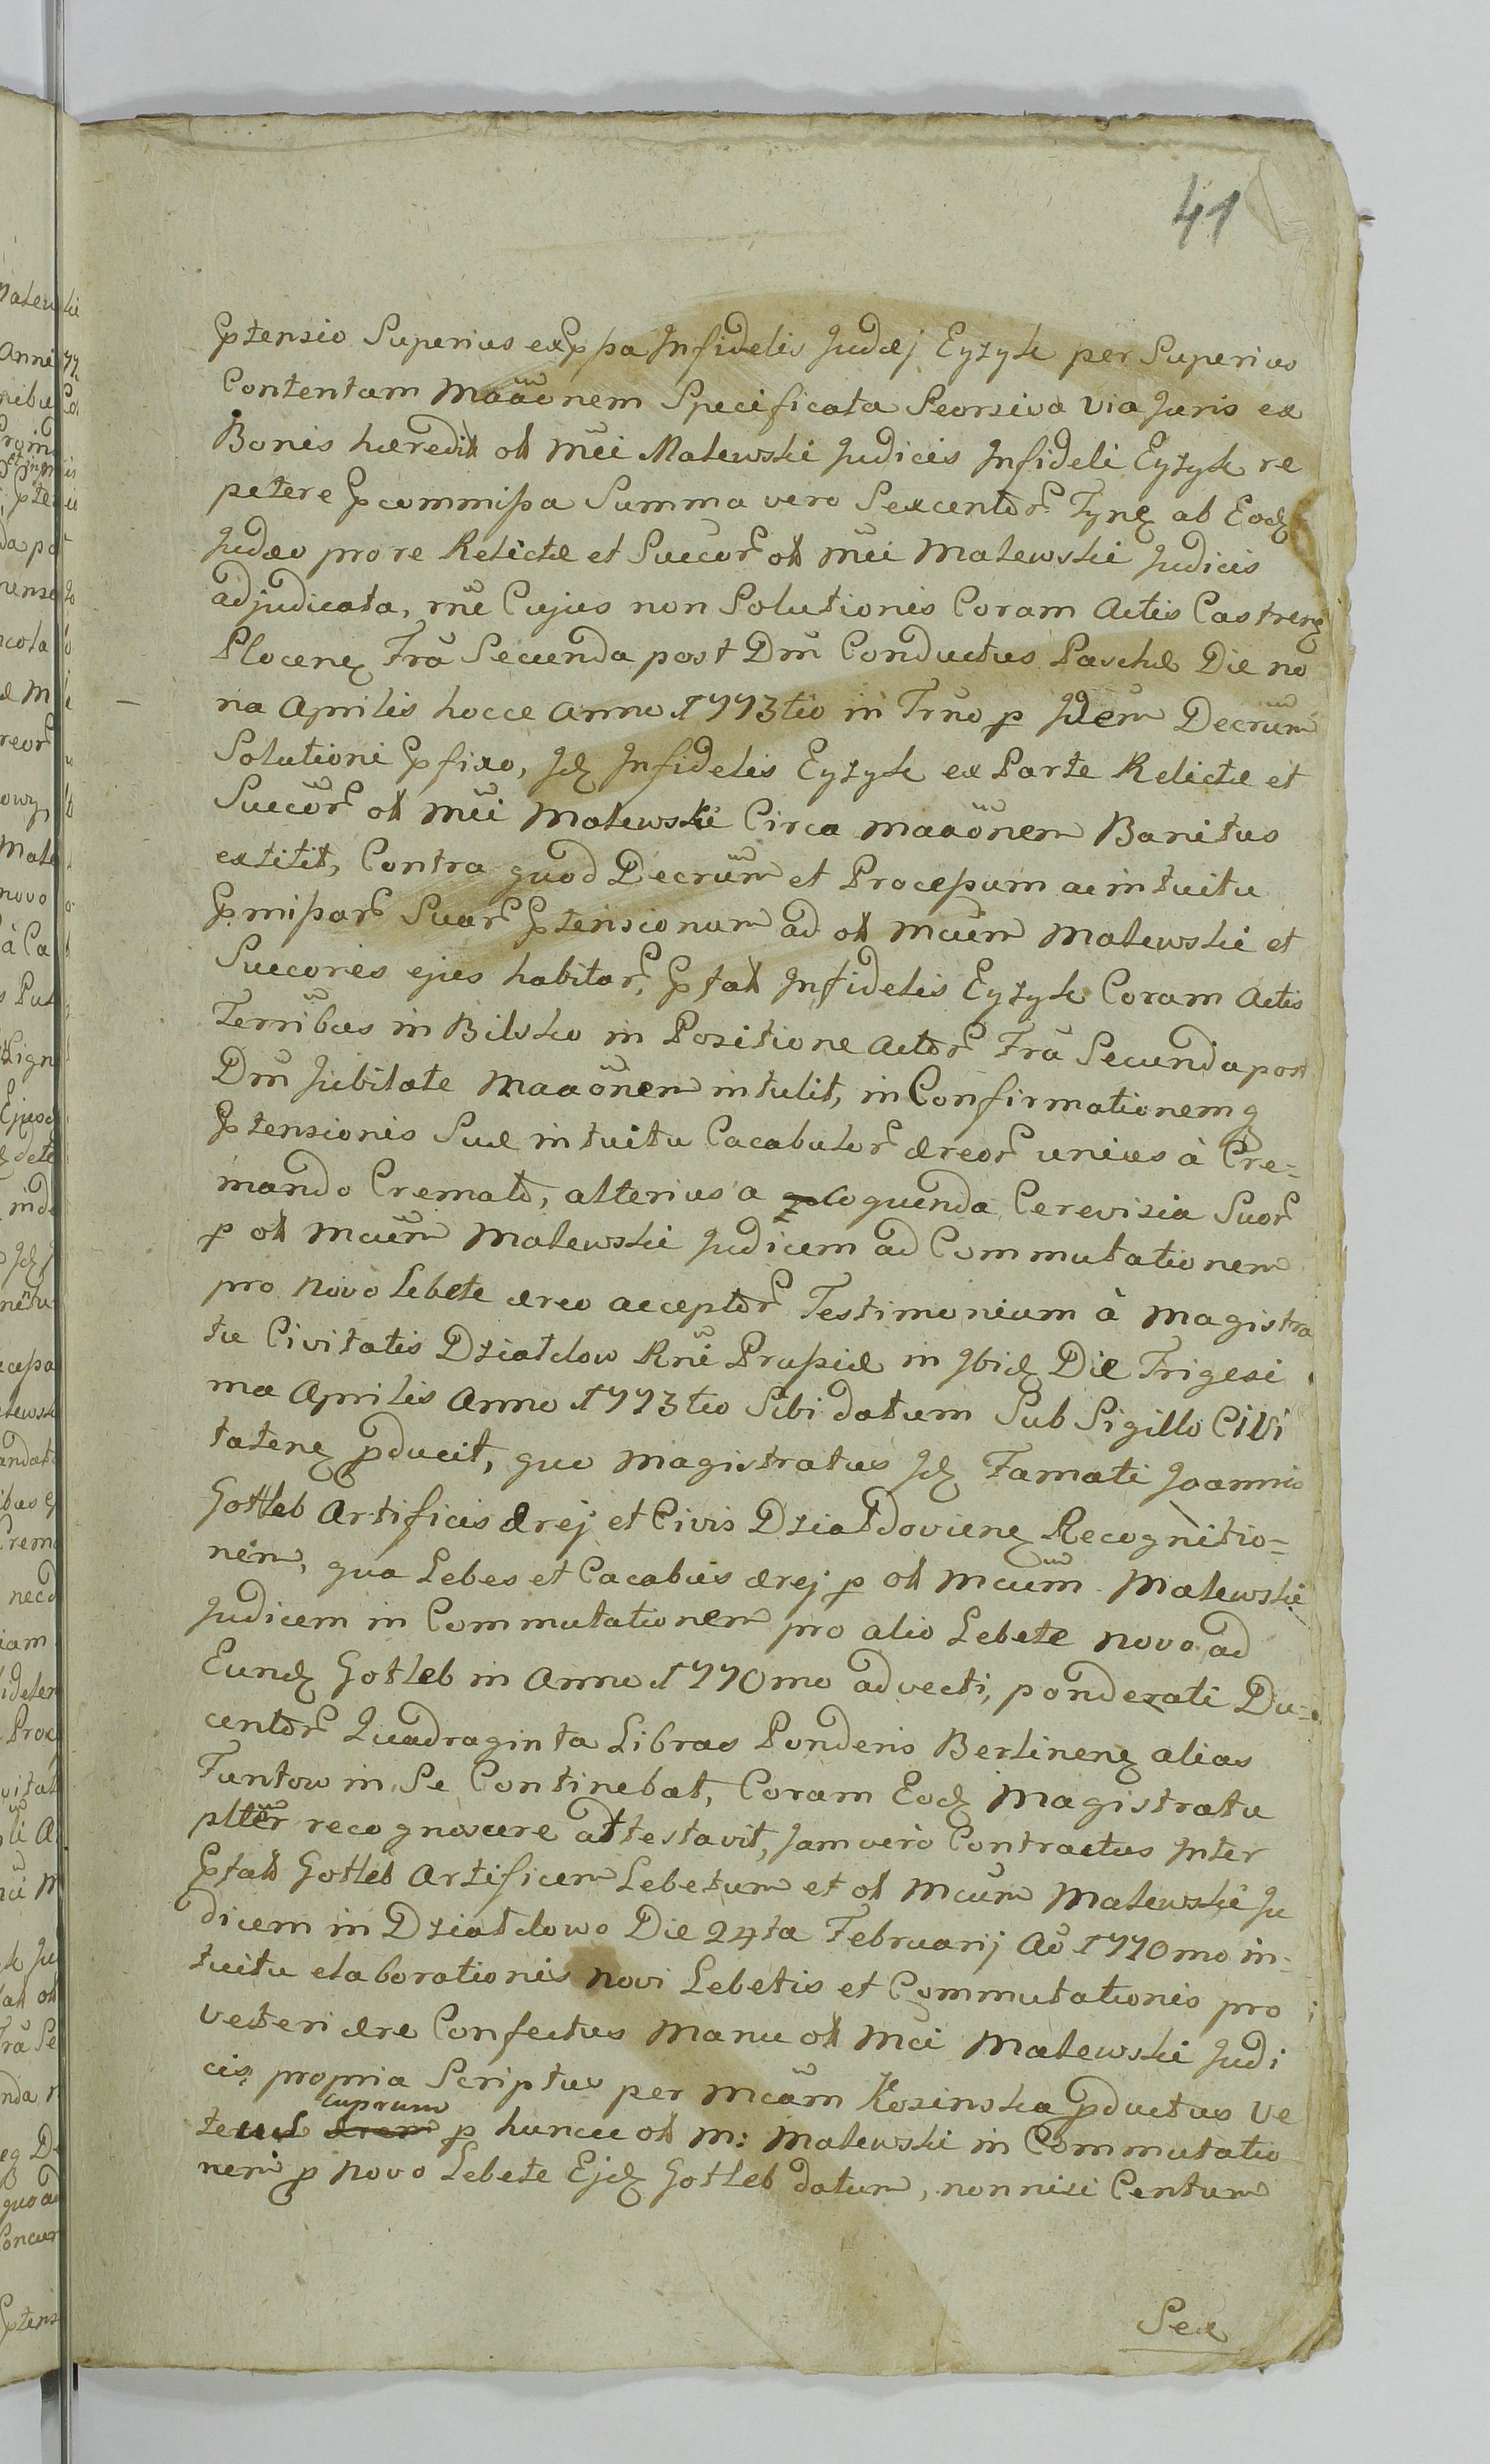 41
Prtensio Superius expssa Infidelis Judæj Eyzyk per Superius
Contentam Maãõnem Specificata Seorsiva via Juris ex
Bonis hæredit ol Mci Malewski Judicis Infideli Eyzyk re
petere prcommissa Summa vero Sexcentor Tynf ab Eod
Judæo pro re Relictæ et Succor ol Mci Malewski Judicis
adjudicata, rne Cujus non Solutionis Coram Actis Castren
Plocen Fra Secunda post Dm Conductus Paschæ Die no
na Aprilis hocce Anno 1773tio in Trno p Idem Decrum
Solutioni prfixo, Id Infidelis Eyzyk ex Parte Relictæ et
Succor ol Mci Malewski Circa maãõnem Banitus
extitit, Contra quod Decrum et Processum ac intuitu
prmissar Suar prtensionum ad ol Mcum Malewski et
Succores ejus habitar, prfat Infidelis Eyzyk Coram Actis
Terribus in Bilsko in Positione Actor Fra Secunda post
Dm Jubilate Maãõnem intulit, in Confirmationemq
prtensionis Suæ intuitu Cacabulor æreor unius à Cre=
mando Cremato, alterius a coquenda Cerevisia Suor
p ol Mcum Malewski Judicem ad Commutationem
pro novo Lebete æreo acceptor Testimonium à Magistra
tu Civitatis Działdow Rni Prussiæ in Ibid Die Trigesi
ma Aprilis Anno 1773tio Sibi datum Sub Sigillo Civi
taten pducit, quo Magistratus Id Famati Joannis
Gottleb Artificis ærej et Civis Działdovien Recognitio=
nem, qua Lebes et Cacabus ærej p ol Mcum Malewski
Judicem in Commutationem pro alio Lebete novo ad
Eund Gotleb in Anno 1770mo advecti, ponderati Du=
centor Quadraginta Libras Ponderis Berlinen alias
Funtow in Se Continebat, Coram Eod Magistratu
plter recognoscere attestavit, Jam vero Contractus Inter
prfat Gotleb Artificem Lebetum et ol Mcum Malewski Ju
dicem in Działdowo Die 24ta Februarij Ao 1770mo in=
tuitu elaborationis novi Lebetis et Commutationis pro
veteri ære Confectus manu ol Mci Malewski Judi
cis propria Scriptus per Mcam Kosinska pductus ve
cuprum
p huncce ol M: Malewski in Commutatio
nem p novo Lebete Ejd Gotleb datum, nonnisi Centum
Sex